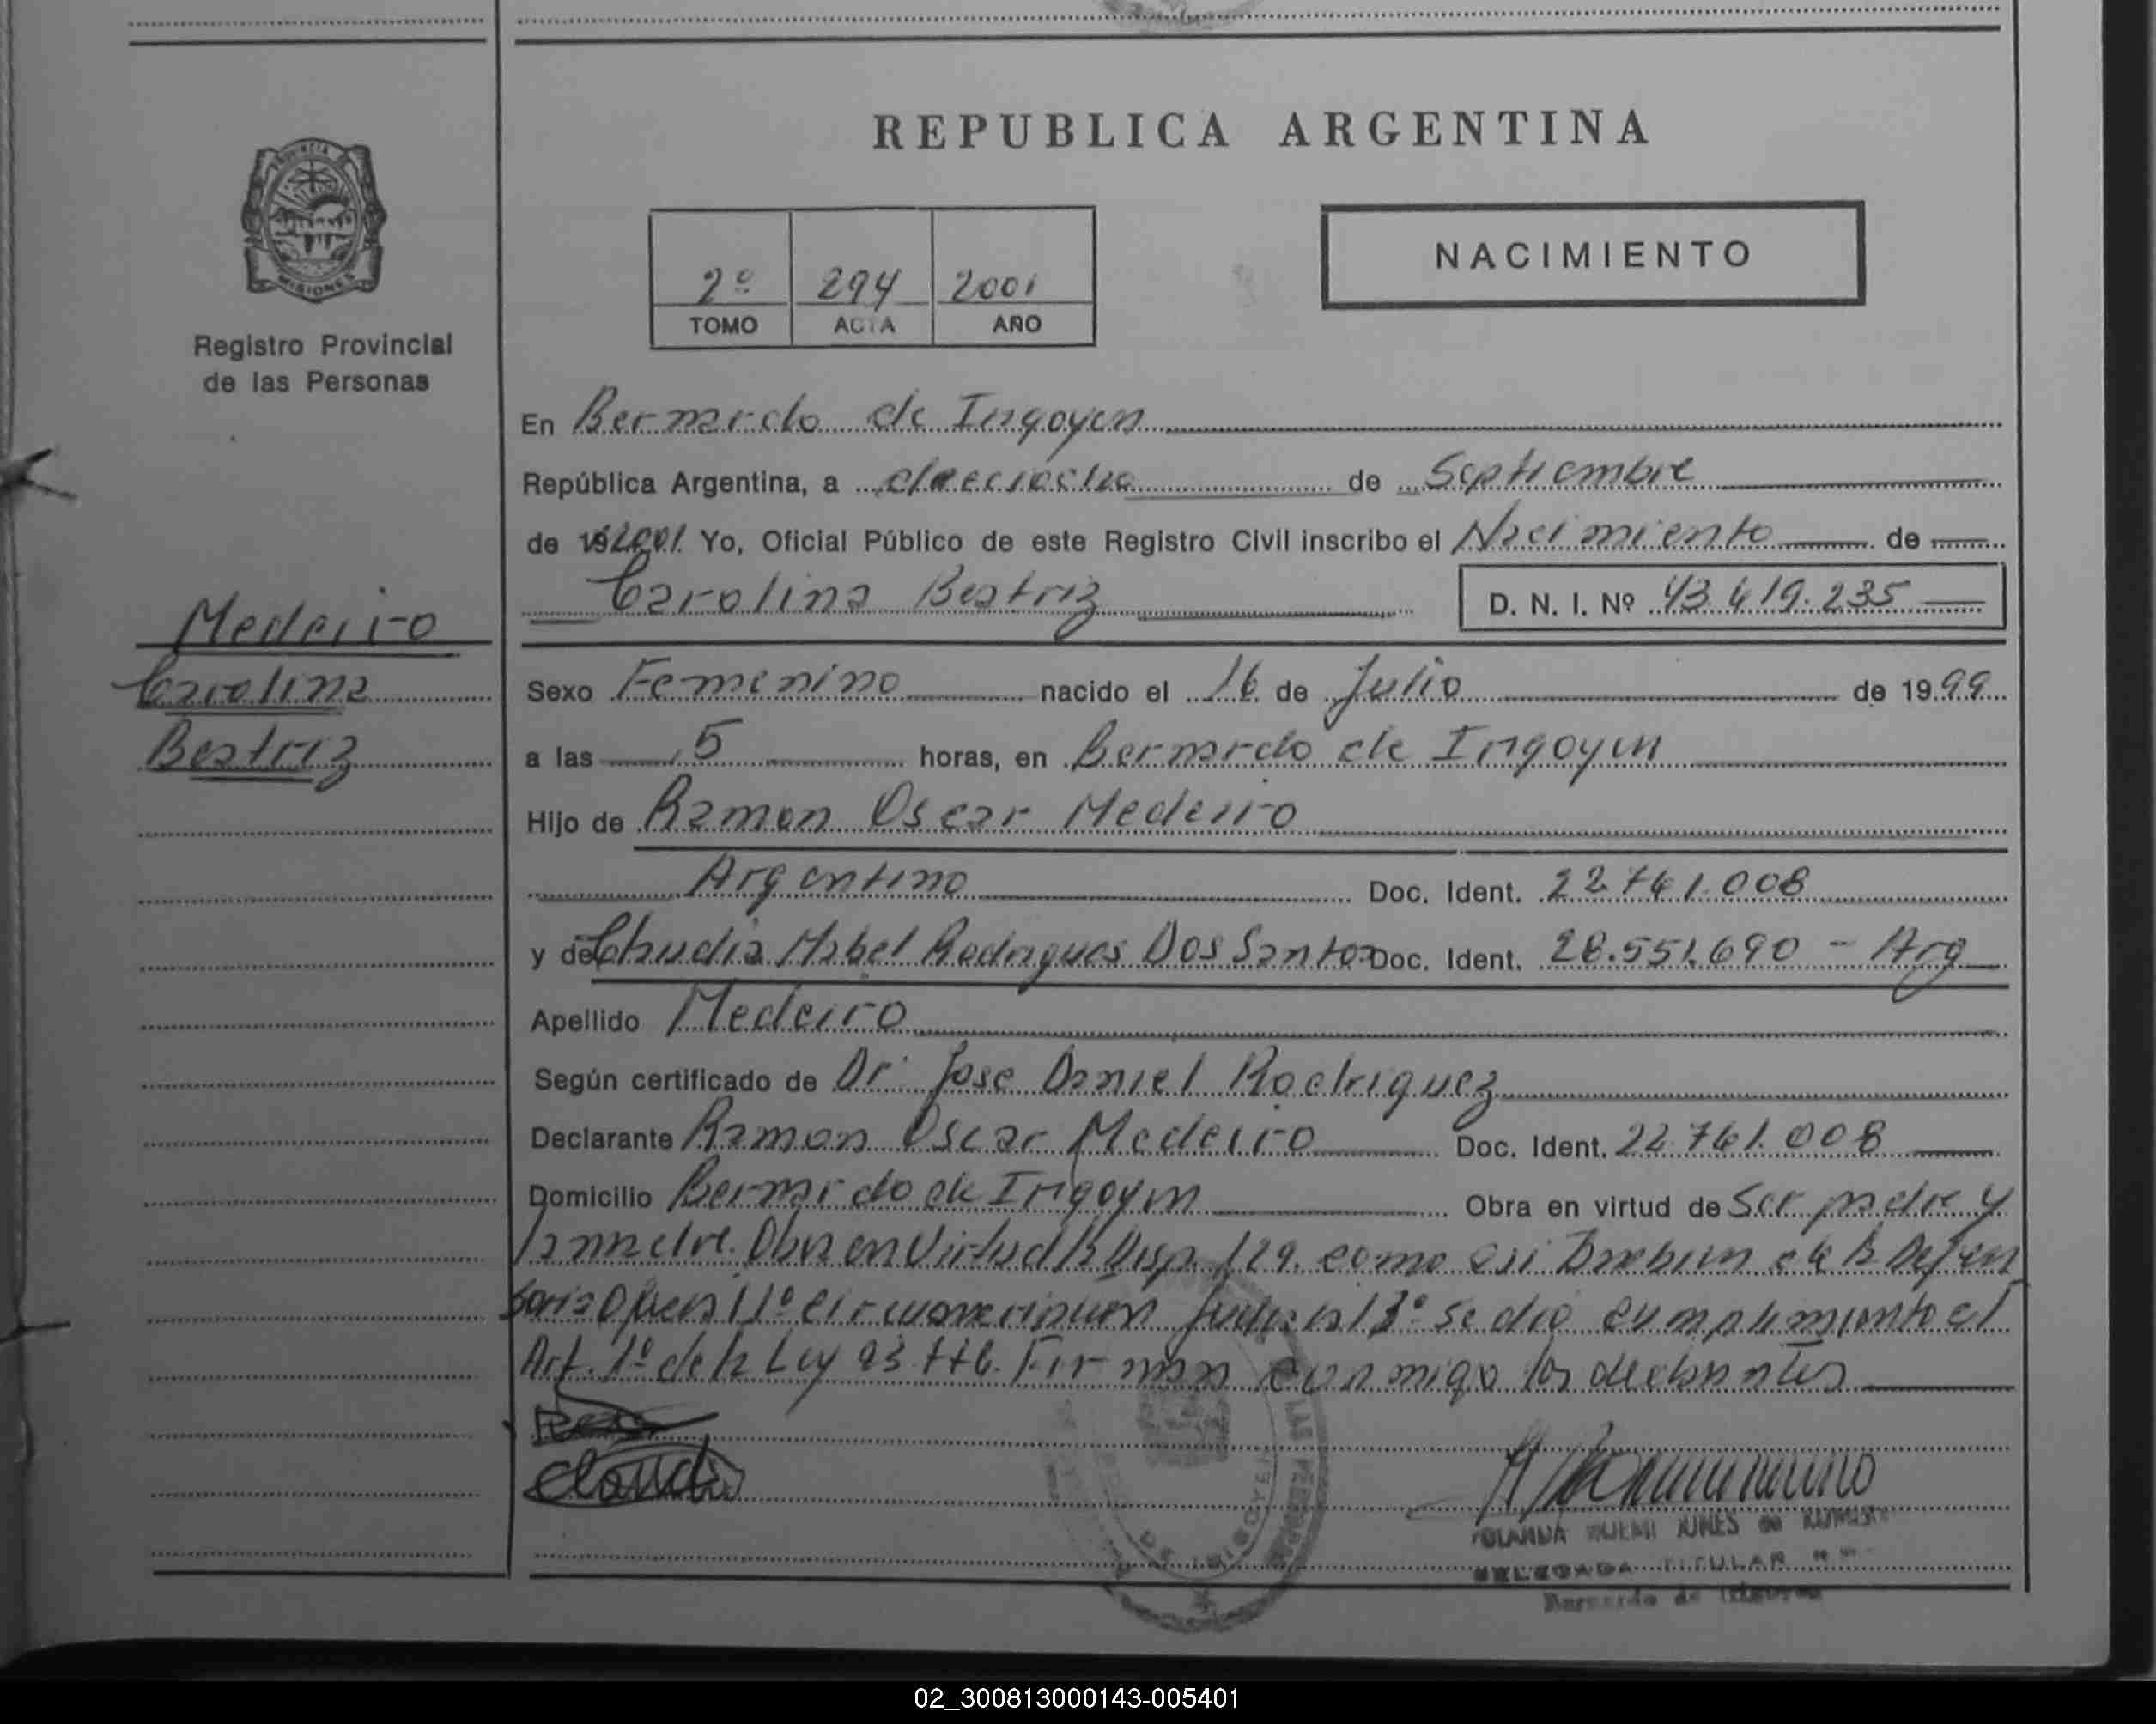 REPUBLICA ARGENTINA
PROVINCIA DE
MISIONES
Registro Provincial
de las Personas
NACIMIENTO
2º 294 2001
TOMO ACTA AÑO
En Bernardo de Irigoyen
República Argentina, a dieciocho de Septiembre
de 19 2001 Yo, Oficial Público de este Registro Civil inscribo el Nacimiento de
Carolina Beatriz D. N. I. Nº 43.419.235
Medeiro
Carolina
Beatriz
Sexo Femenino nacido el 16 de Julio de 1999
a las 5 horas, en Bernardo de Irigoyen
Hijo de Ramon Oscar Medeiro
Argentino Doc. Ident. 22.761.008
y de Claudia Mabel Rodrigues Dos Santos Doc. Ident. 28.551.690 - Arg
Apellido Medeiro
Según certificado de Dr. Jose Daniel Rodriguez
Declarante Ramon Oscar Medeiro Doc. Ident. 22.761.008
Domicilio Bernardo de Irigoyen Obra en virtud de Ser padre y
la madre. Obra en Virtud la Disp. 129. como asi de la Defen
soria 11º circunscripcion se dio cumplimiento al
Art. 1º de la Ley 23.776. Firman conmigo los declarantes
Claudi
DELEGADA TITULAR
Bernardo de Irigoyen
02_300813000143-005401